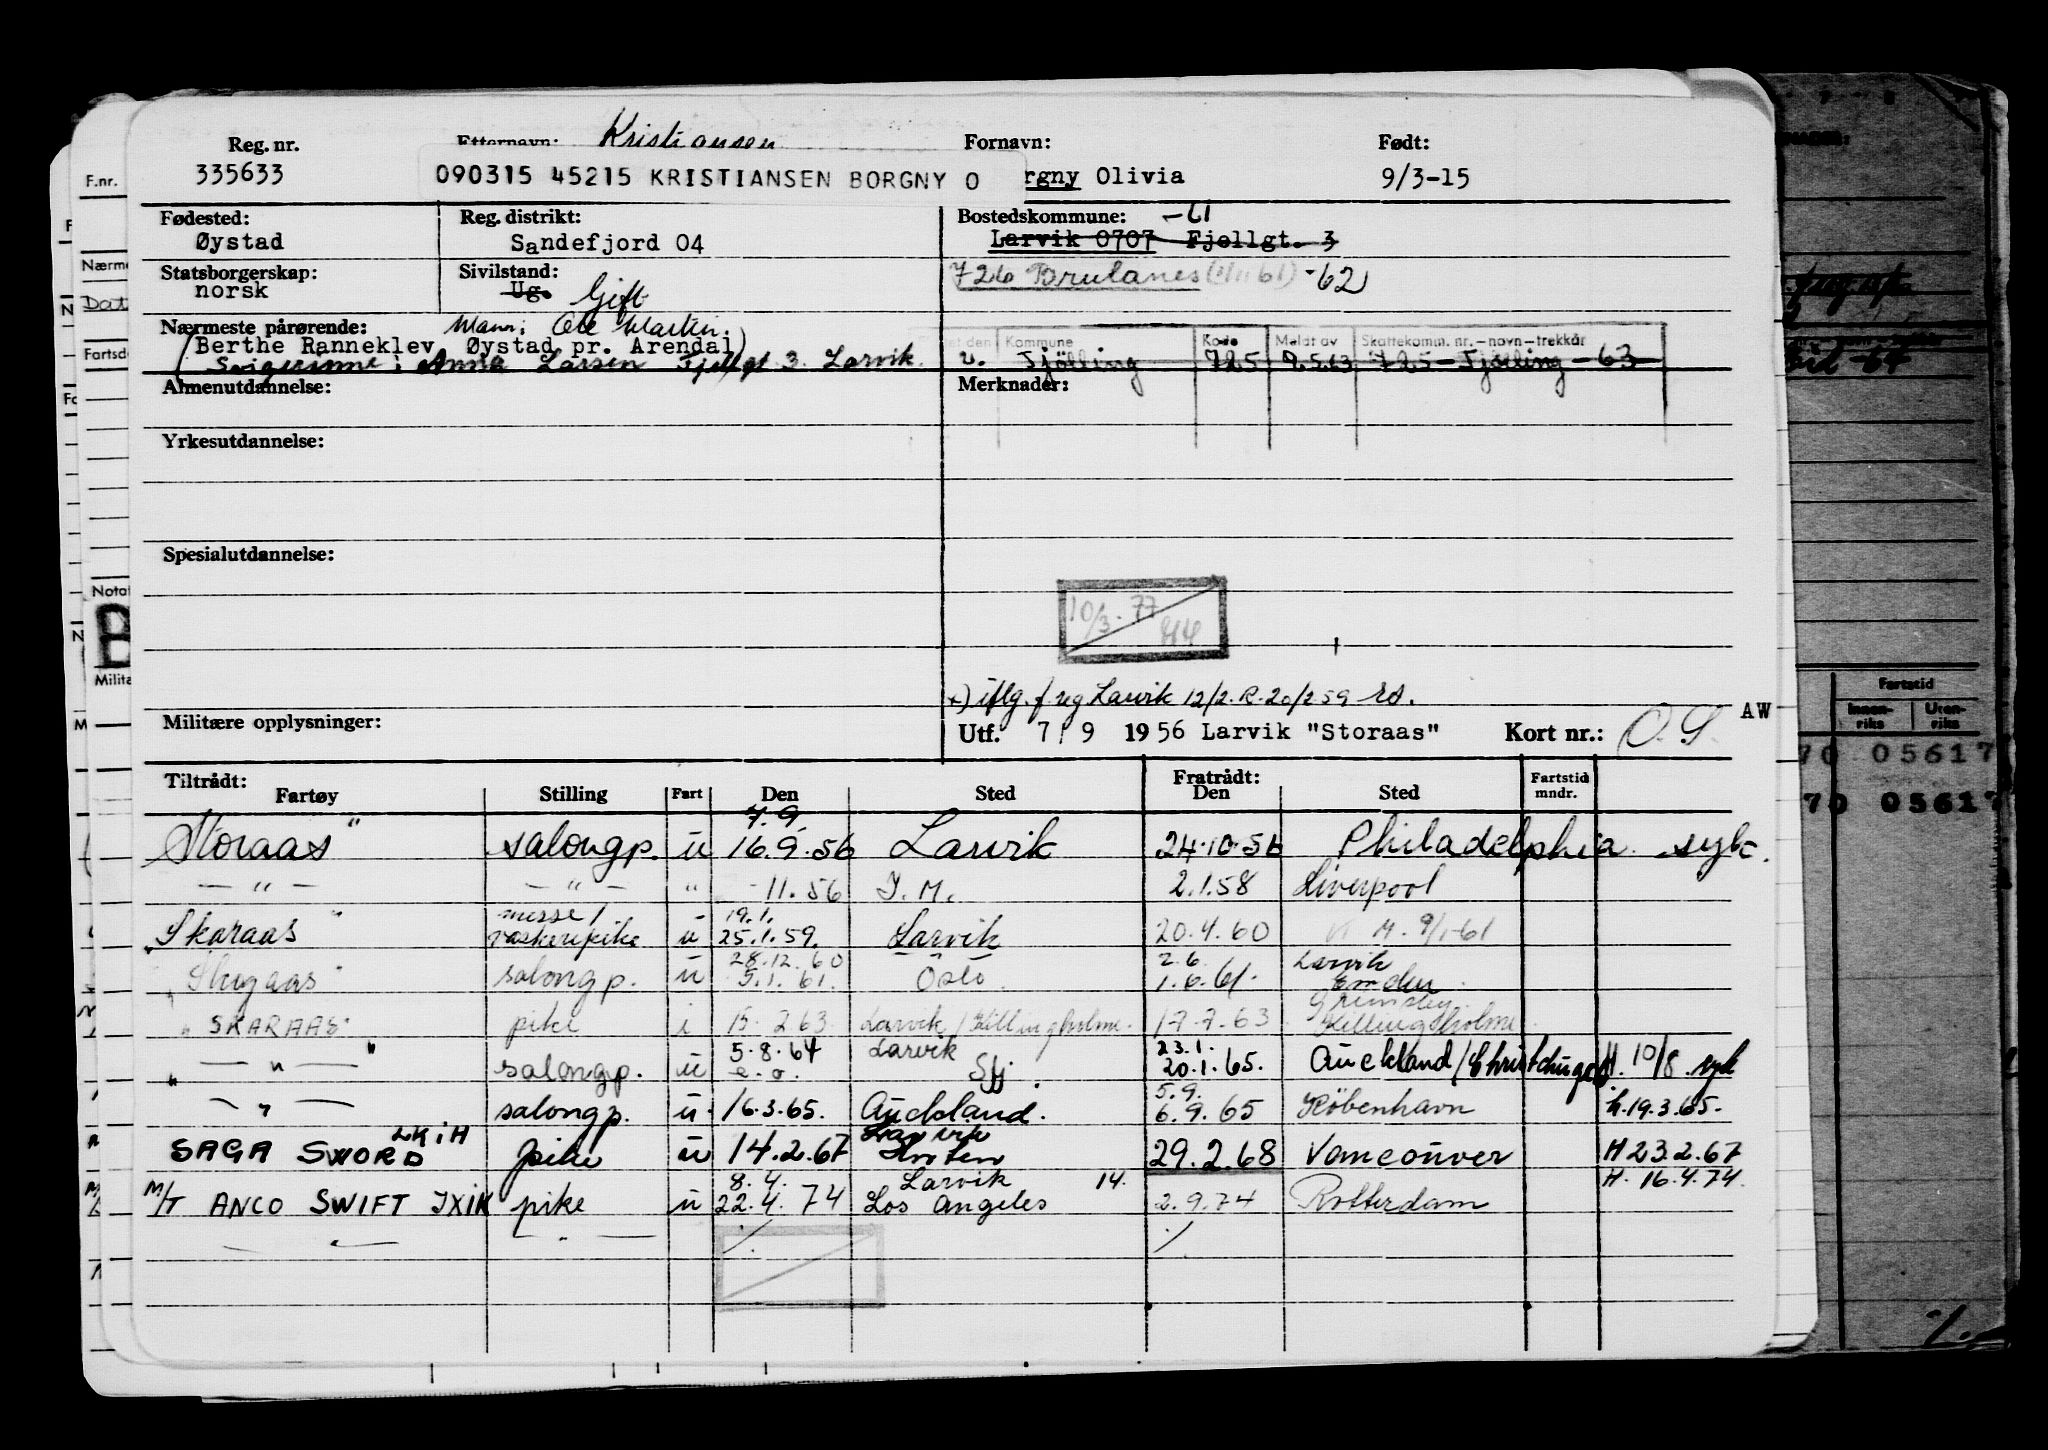 Reg. nr. Etternavn: Kristiansen Fornavn: Født:
335633 090315 45215 KRISTIANSEN BORGNY O rgny Olivia 9/3-15
Fødested: Reg. distrikt: Bostedskommune: -61
Øystad Sandefjord 04 Larvik 0707 Fjellgt. 3
Statsborgerskap: Sivilstand: 726 Brulanes (1/11 61) -62
norsk Ug. Gift
Nærmeste pårørende: Mann: Ole Martin.
(Berthe Ranneklev, Øystad pr. Arendal)
Svigerinne: Anna Larsen Fjellgt 3. Larvik.
Kommune Kode Meldt av Skattekomm. nr. – navn – trekkår
Tjölling 725 725 - Tjölling - 63
Almenutdannelse: Merknader:
Yrkesutdannelse:
Spesialutdannelse:
10/3. 77
x) iflg. f. reg Larvik 12/2. R. 20/2 59 rs.
Militære opplysninger: Utf. 7/9 1956 Larvik "Storaas" Kort nr.: O.S. AW
Tiltrådt: Fartøy Stilling Fart Den Sted Fratrådt: Den Sted Fartstid mndr.
7.9.
Storaas" salongp. u 16.9.56 Larvik 24.10.56 Philadelphia syk.
— " — — " — " - 11.56 I.M. 2.1.58 Liverpool
messe/ 19.1.
"Skaraas" vaskeripike u 25.1.59. Larvik 20.4.60 M. 9/1-61
28.12.60 2.6. Larvik
salongp. u 5.1.61. Oslo 1.6.61. Emden
Grimsby
"SKARAAS" pike i 15.2.63 Larvik/Killingholme. 17.7.63 Killingholme
5.8.64 Larvik 23.1.
" — " — " salongp. u e.o. Sfj. 20.1.65. Auckland/Christchurch H. 10/8 syk
5.9.
— " — salongp. u. 16.3.65. Auckland. 6.9.65 Köbenhavn h. 19.3.65.
LKIH Larvik
SAGA SWORD pike u 14.2.67 29.2.68 Vancouver H 23.2.67
8.4. Larvik 14. H. 16.4.74.
M/T ANCO SWIFT JXIK pike u 22.4.74 Los Angeles 2.9.74 Rotterdam
— " — — " — ./. ./.
F.nr.
Nærme
Dat
Fartsd
Notat
B
Milita
Fartstid
Innen-riks Uten-riks
70 05617
70 05617